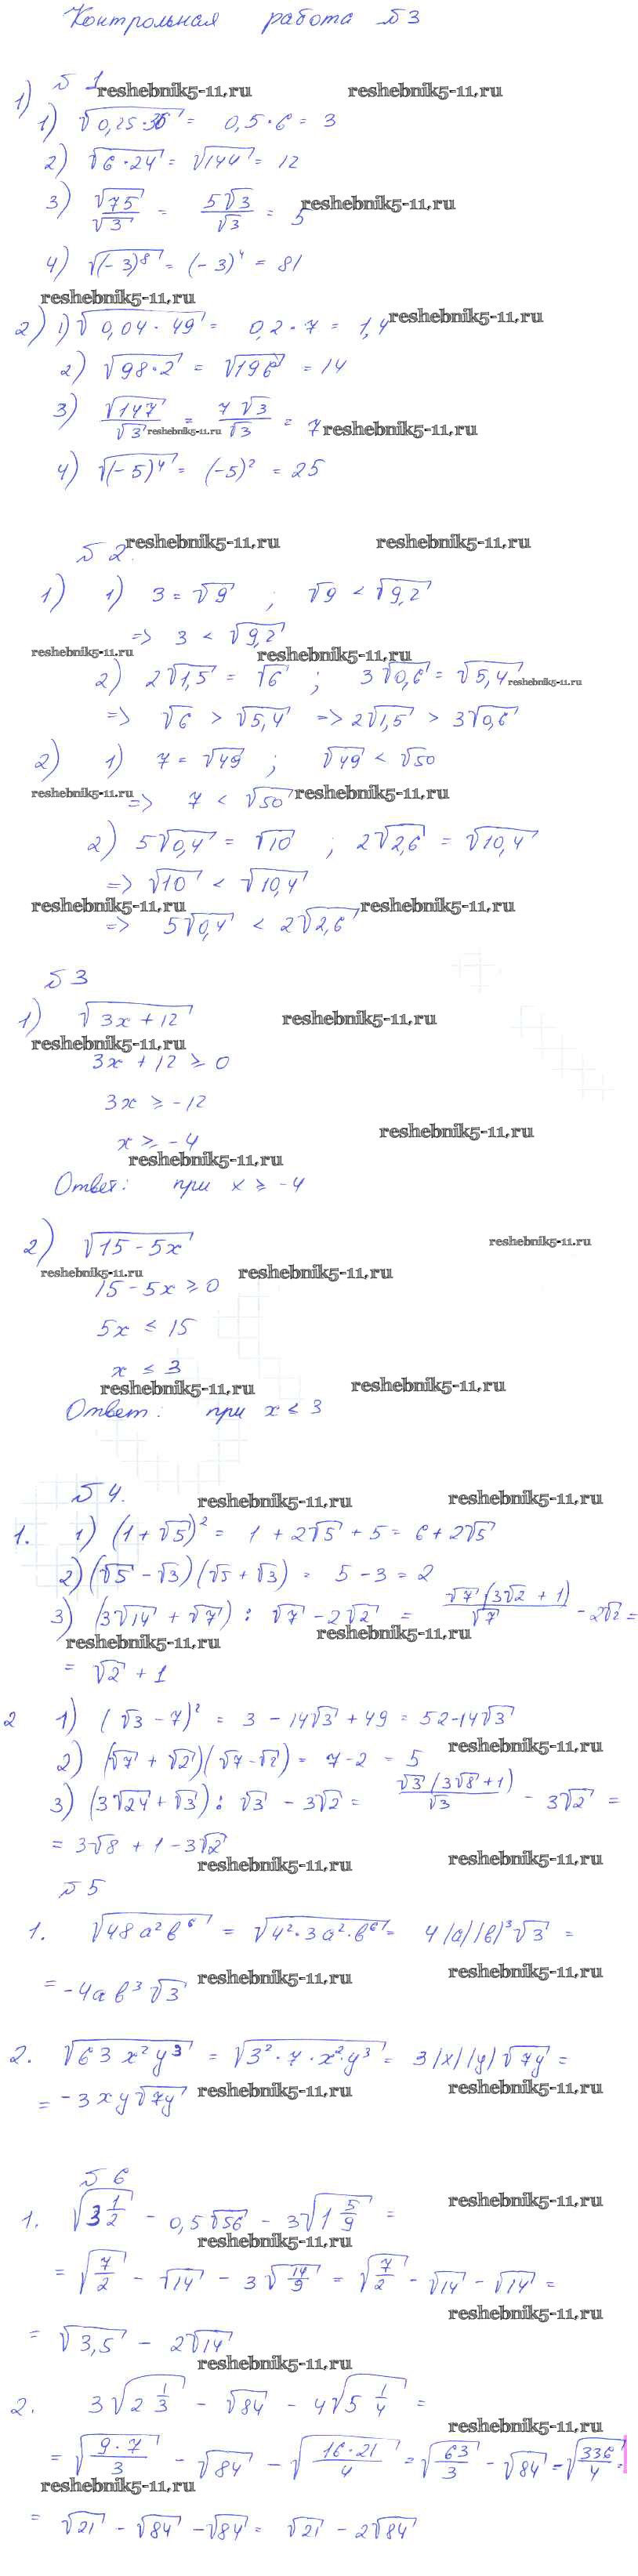 Контрольная работа №3
№ 1
reshebnik5-11.ru reshebnik5-11.ru
1) 1) √(0,25·36) = 0,5·6 = 3
2) √(6·24) = √144 = 12
3) √75/√3 = 5√3/√3 = 5
reshebnik5-11.ru
4) √((-3)⁸) = (-3)⁴ = 81
reshebnik5-11.ru
2) 1) √(0,04·49) = 0,2·7 = 1,4
reshebnik5-11.ru
2) √(98·2) = √196 = 14
3) √147/√3 = 7√3/√3 = 7
reshebnik5-11.ru reshebnik5-11.ru
4) √((-5)⁴) = (-5)² = 25
№ 2.
reshebnik5-11.ru reshebnik5-11.ru
1) 1) 3 = √9 ; √9 < √9,2
=> 3 < √9,2
reshebnik5-11.ru reshebnik5-11.ru
2) 2√1,5 = √6 ; 3√0,6 = √5,4
reshebnik5-11.ru
=> √6 > √5,4 => 2√1,5 > 3√0,6
2) 1) 7 = √49 ; √49 < √50
=> 7 < √50
reshebnik5-11.ru reshebnik5-11.ru
2) 5√0,4 = √10 ; 2√2,6 = √10,4
=> √10 < √10,4
reshebnik5-11.ru reshebnik5-11.ru
=> 5√0,4 < 2√2,6
№ 3
1) √(3x + 12)
reshebnik5-11.ru
reshebnik5-11.ru
3x + 12 ≥ 0
3x ≥ -12
reshebnik5-11.ru
x ≥ -4
reshebnik5-11.ru
Ответ: при x ≥ -4
2) √(15 - 5x)
reshebnik5-11.ru
reshebnik5-11.ru reshebnik5-11.ru
15 - 5x ≥ 0
5x ≤ 15
x ≤ 3
reshebnik5-11.ru reshebnik5-11.ru
Ответ: при x ≤ 3
№ 4.
reshebnik5-11.ru reshebnik5-11.ru
1. 1) (1 + √5)² = 1 + 2√5 + 5 = 6 + 2√5
2) (√5 - √3)(√5 + √3) = 5 - 3 = 2
3) (3√14 + √7) : √7 - 2√2 = √7(3√2 + 1)/√7 - 2√2 =
reshebnik5-11.ru reshebnik5-11.ru
= √2 + 1
2 1) (√3 - 7)² = 3 - 14√3 + 49 = 52 - 14√3
reshebnik5-11.ru
2) (√7 + √2)(√7 - √2) = 7 - 2 = 5
3) (3√24 + √3) : √3 - 3√2 = √3(3√8 + 1)/√3 - 3√2 =
= 3√8 + 1 - 3√2
reshebnik5-11.ru reshebnik5-11.ru
№ 5
1. √(48a²b⁶) = √(4²·3a²·b⁶) = 4|a||b|³√3 =
reshebnik5-11.ru reshebnik5-11.ru
= -4ab³√3
2. √(63x²y³) = √(3²·7·x²·y³) = 3|x||y|√(7y) =
reshebnik5-11.ru reshebnik5-11.ru
= -3xy√(7y)
№ 6
1. √(3 1/2) - 0,5√56 - 3√(1 5/9) =
reshebnik5-11.ru
reshebnik5-11.ru
= √(7/2) - √14 - 3√(14/9) = √(7/2) - √14 - √14 =
reshebnik5-11.ru
= √3,5 - 2√14
reshebnik5-11.ru
2. 3√(2 1/3) - √84 - 4√(5 1/4) =
reshebnik5-11.ru
= √(9·7/3) - √84 - √(16·21/4) = √(63/3) - √84 = √(336/4) =
reshebnik5-11.ru
= √21 - √84 - √84 = √21 - 2√84